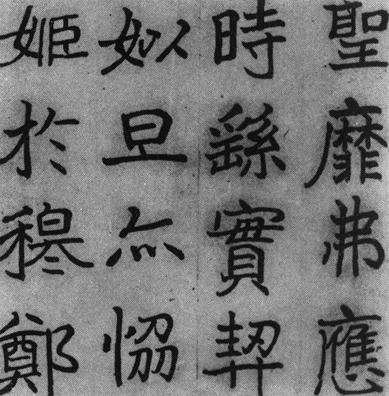 聖靡弗應
時繇實契
姒旦亦恊
姬於穆鄭